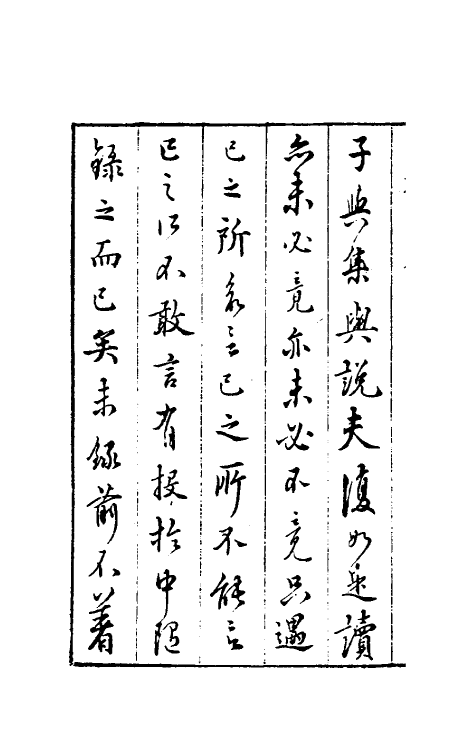 子與集與說夫復如是讀
亦未必竟亦未必不竟只遇
己之所欲言己之所不能言
己之所不敢言有投於中隨
錄之而已矣未錄前不著